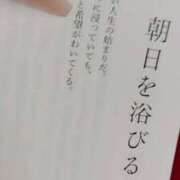 朝日を浴びる
人生の始まりだ。
に浸っていても、
と希望がわいてくる。